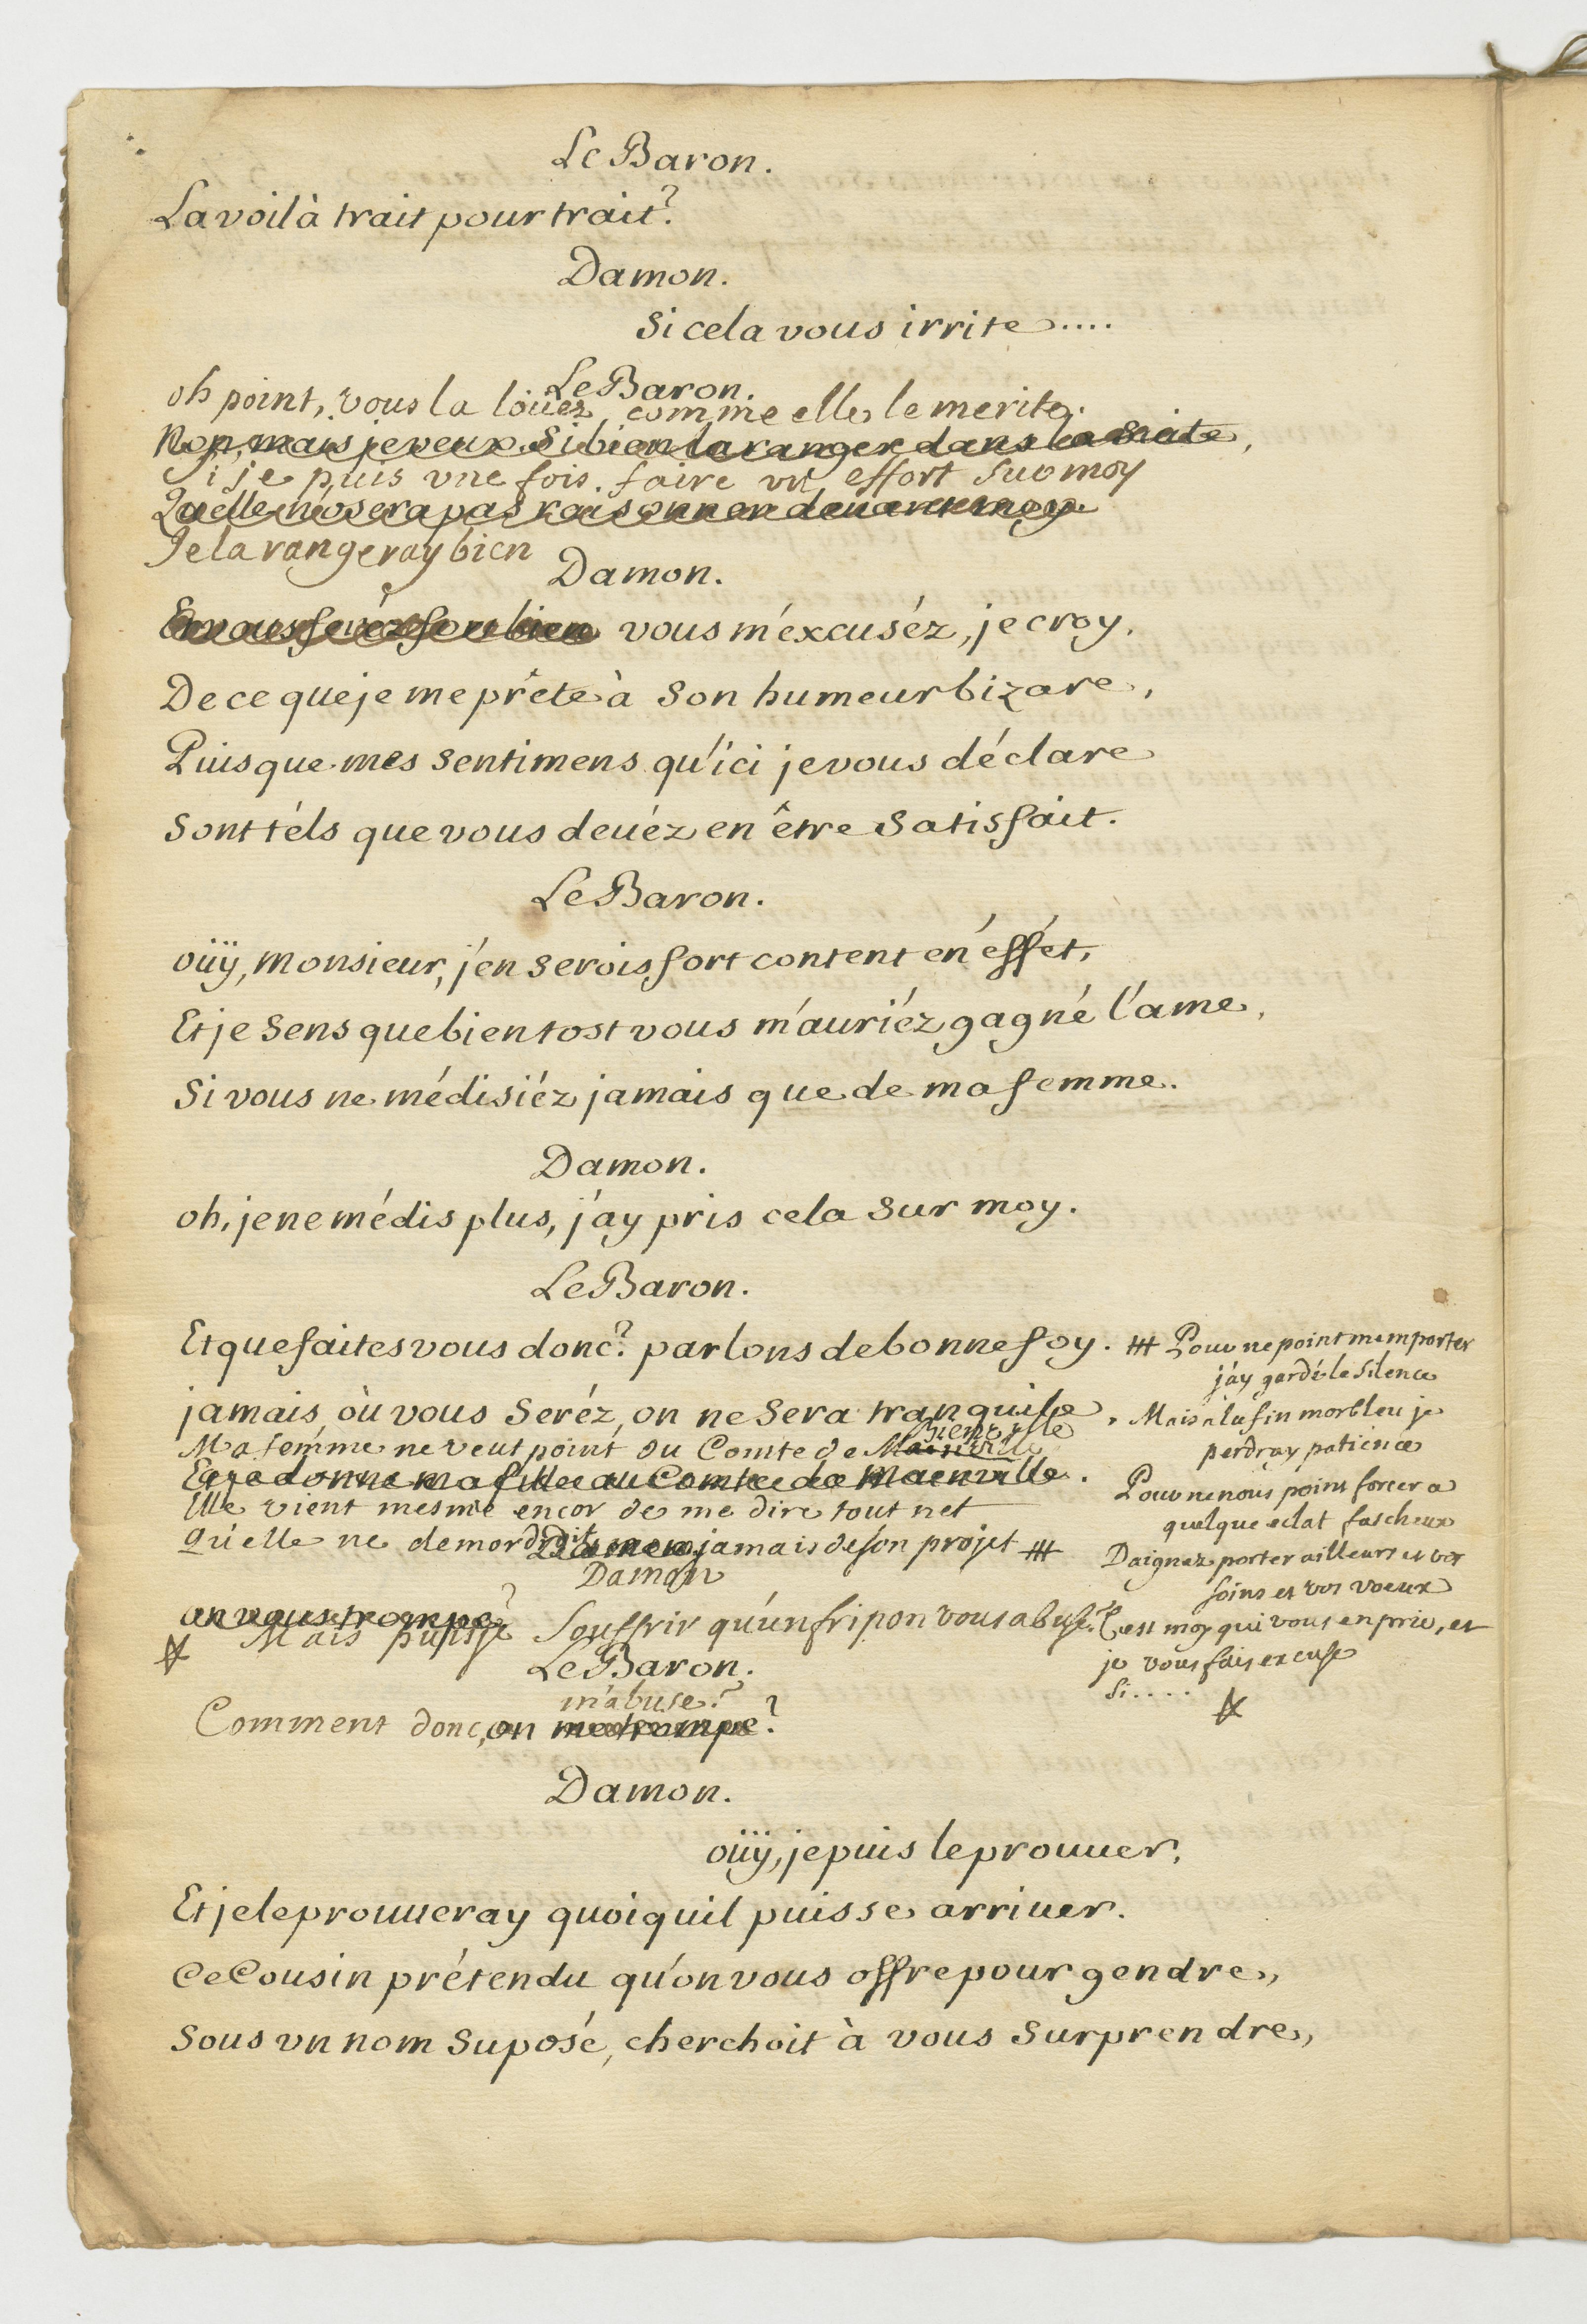 Le Baron.
La voilà trait pour trait?
Damon.
Si cela vous irrite....
Le Baron.
oh point, vous la loüez comme elle le merite.
Non, mais je veux si bien la ranger dans la suite,
Si je puis vne fois faire vn effort sur moy
Qu'elle n'osera pas raisonner deuant moy.
Je la rangeray bien
Damon.
Et vous feréz fort bien vous m'éxcuséz, je croy,
De ce que je me prête à son humeur bizare,
Puisque mes sentimens qu'ici je vous déclare
Sont téls que vous deuéz en être satisfait.
Le Baron.
oüy, monsieur, j'en serois fort content en éffét,
Et je sens que bientost vous m'auriéz gagné l'ame,
Si vous ne médisiéz jamais que de ma femme.
Damon.
oh, je ne médis plus, j'ay pris cela sur moy.
Le Baron.
Et que faites vous donc? parlons de bonne foy.
jamais, où vous seréz, on ne sera tranquile,
Ma femme ne veut point du Comte de
Et je donne ma fille au Comte de Mainville.
Elle vient mesme encor de me dire tout net
Qu'elle ne demordroit jamais de son projet #
Damon.
Damon
on vous trompe?
☆ Mais puisje souffrir qu'un fripon vous abuse?
Le Baron.
m'abuse?
Comment donc, on me trompe?
Damon.
oüy, je puis le prouuer,
Et je le prouueray quoiquil puisse arriuer.
Ce Cousin prétendu qu'on vous offre pour gendre,
Sous vn nom suposé, cherchoit à vous surprendre,
# Pour ne point m'emporter
j'ay gardé le silence
Mais a la fin morbleu je
perdray patience
Pour ne nous point forcer a
quelque eclat fascheux
Daignez porter ailleurs et vos
soins et vos voeux
C'est moy qui vous en prie, et
je vous fais excuse
Si....
☆